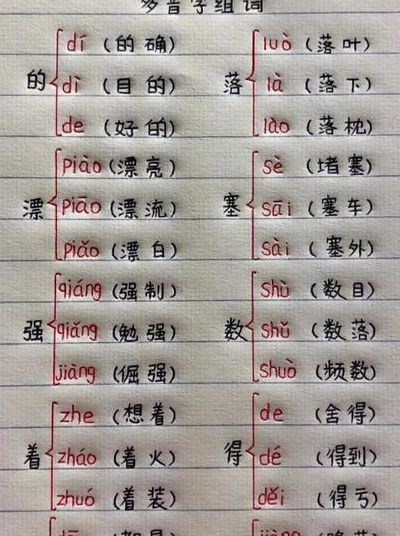 多音字组词
的 dí （的确） 落 luò （落叶）
dì （目的） là （落下）
de （好的） lào （落枕）
漂 piào （漂亮） 塞 sè （堵塞）
piāo （漂流） sāi （塞车）
piǎo （漂白） sài （塞外）
强 qiáng （强制） 数 shù （数目）
qiǎng （勉强） shǔ （数落）
jiàng （倔强） shuò （频数）
着 zhe （想着） 得 de （舍得）
zháo （着火） dé （得到）
zhuó （着装） děi （得亏）